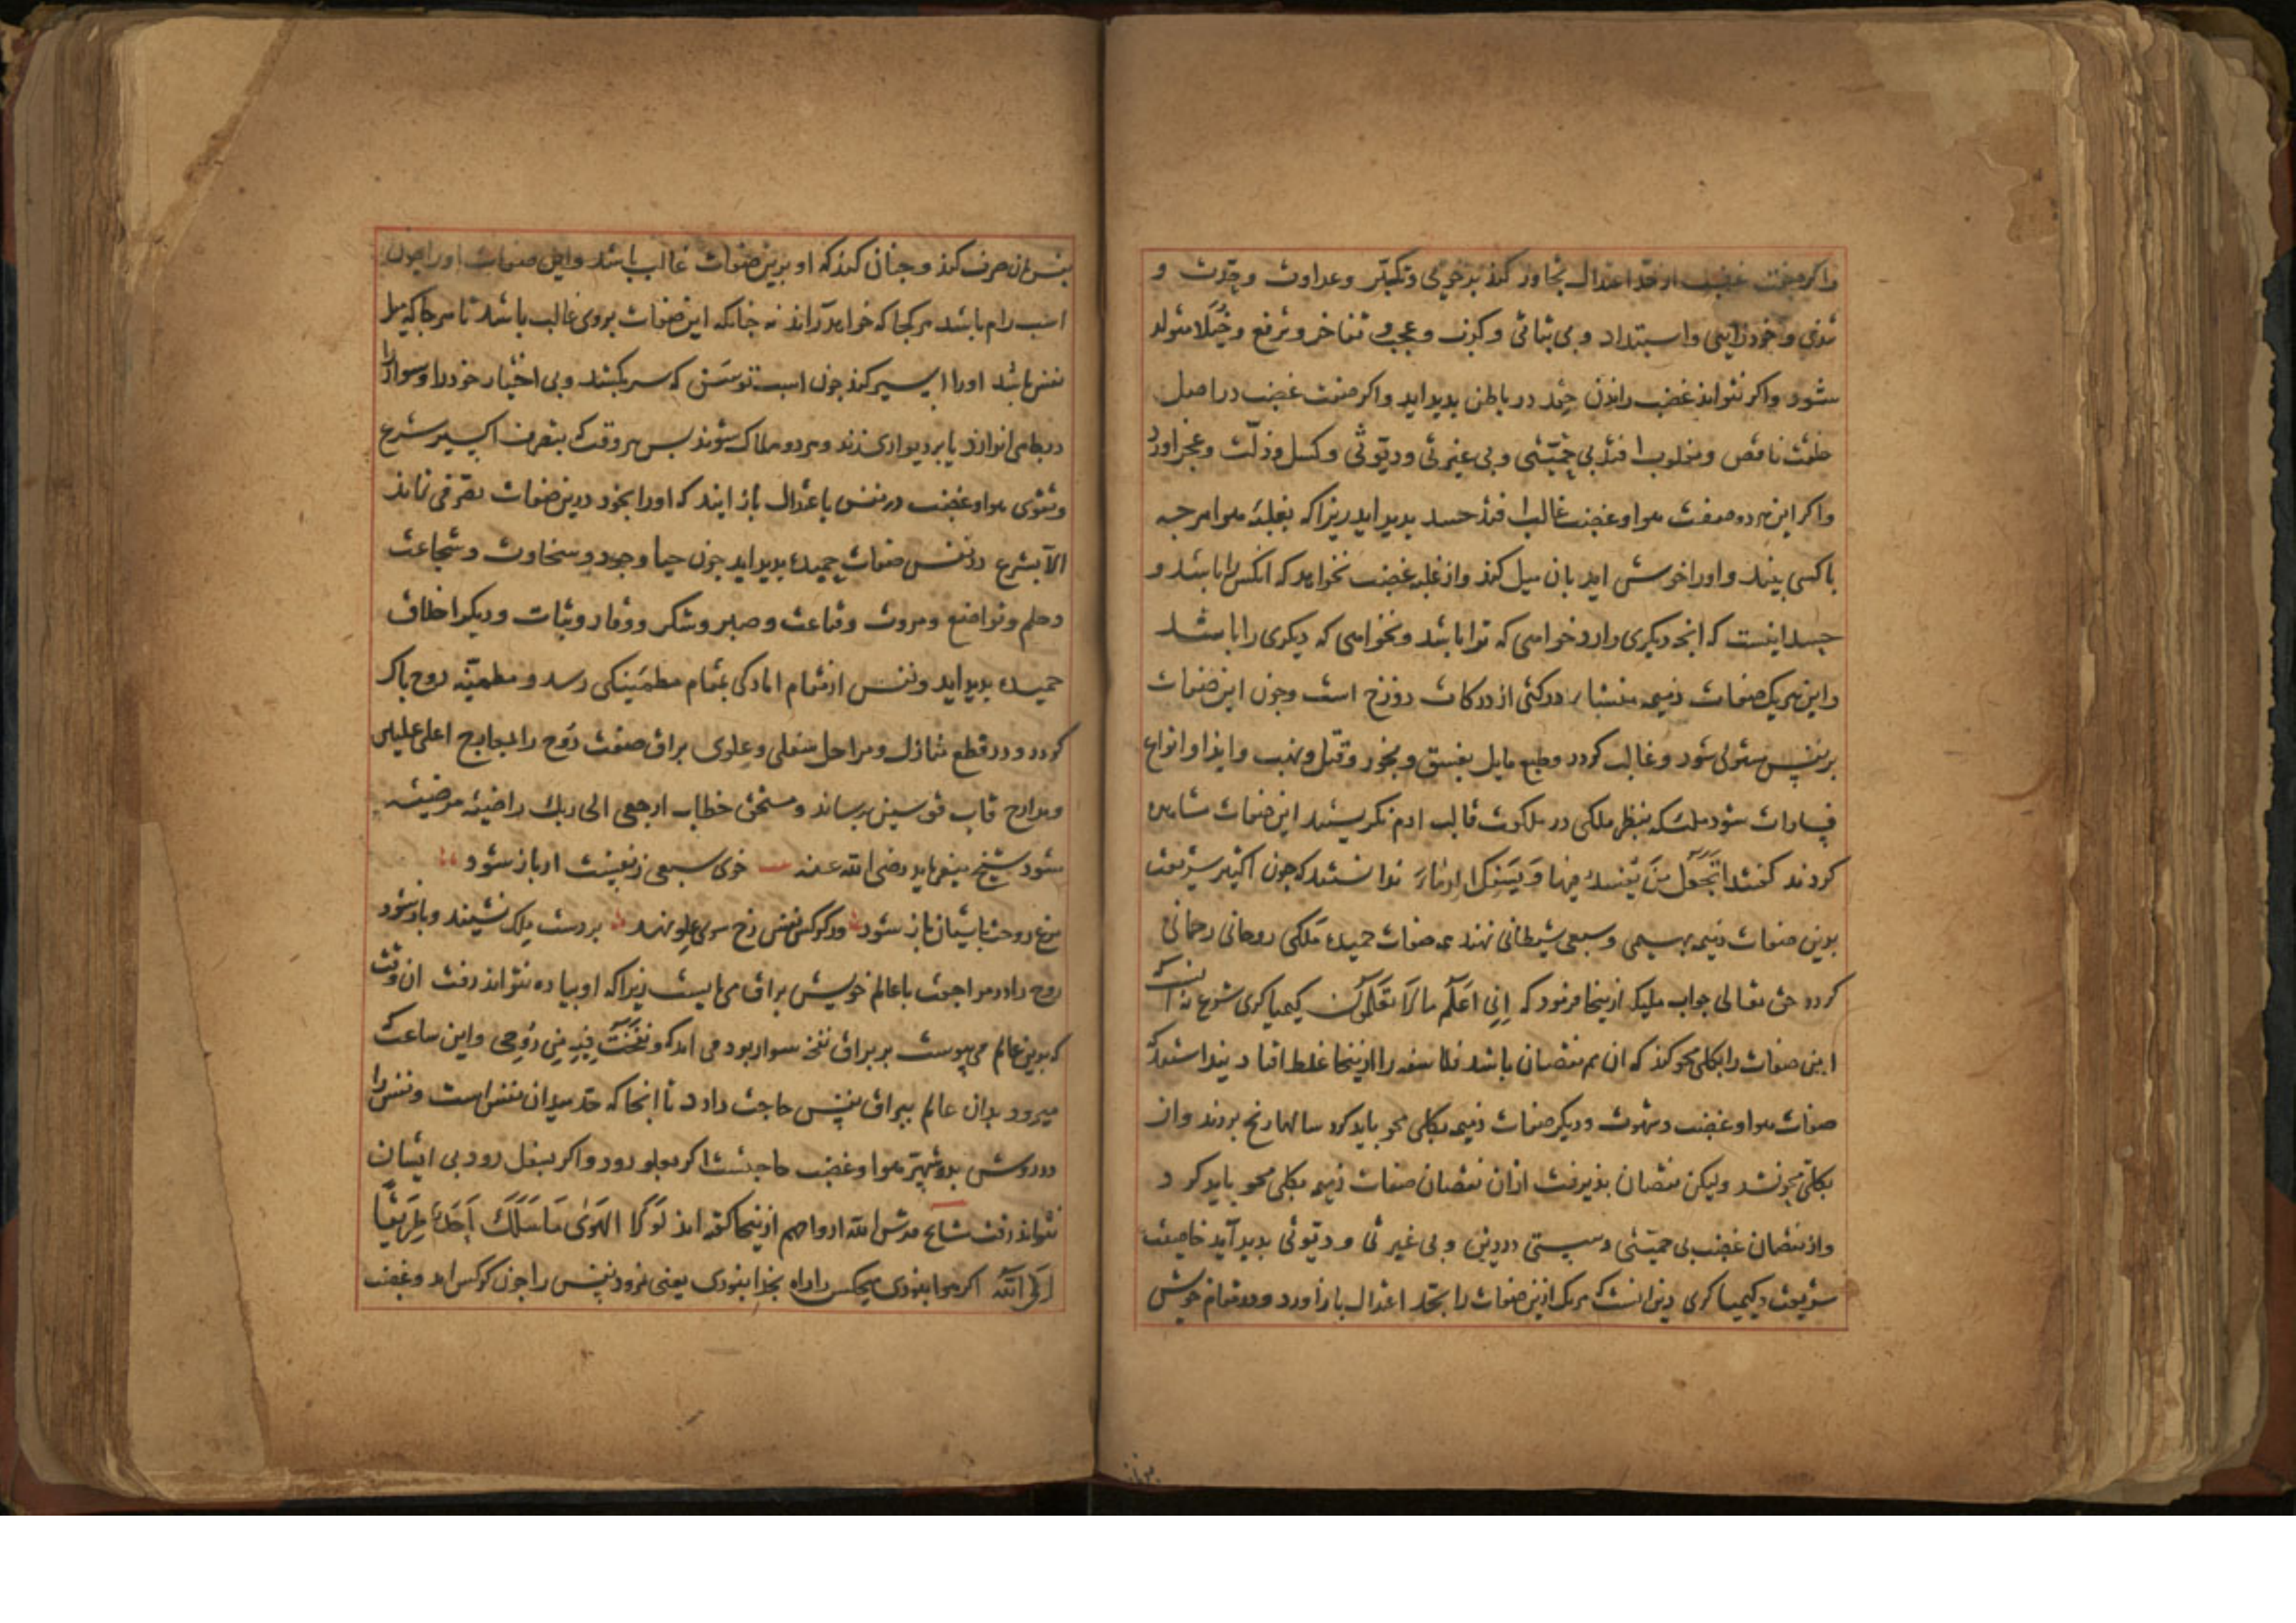 واکر صفت غضب از حد اعتدال تجاوز کند بدخویی و تکبّر وعداوت وحِدّت و
تندی و خودرایی واستبداد و بی ثباتی و کذب وعجب و تفاخر و ترفع و خُیَلا متولد
شود واکر نتواند غضب راندن حِقد در باطن بدید اید واکر صفت غضب در اصل
خلقت ناقص و مغلوب افتد بی حمیّتی و بی غیرتی و دیّوثی و کسل و ذلّت و عجز اورد
واکر این هر دو صفت هوا و غضب غالب افتد حسد بدید اید زیرا که بغلبهٔ هوا هر چه
با کسی بیند و اورا خوش اید بان میل کند واز غلبهٔ غضب نخواهد که انکس را باشد و
حسد اینست که انجه دیکری دارد خواهی که ترا باشد ونخواهی که دیکری را باشد
واین هر یک صفات ذمیمه منشاء درکتی از درکات دوزخ است وجون این صفات
بر نفس مستولی شود وغالب کردد وطبع مایل بفسق و فجور و قتل و نهب وایذا وانواع
فسادات شود ملئکه بنظر ملکی در ملکوت قالب ادم نکریستند این صفات مشاهده
کردند کفتند اَتَجْعَلُ فیها مَنْ یُفْسِدُ فیها وَ یَسْفِکُ الدِّماءَ ندانستند که جون اکسیر شریعت
بدین صفات ذمیمه بهیمی و سبعی شیطانی نهند همه صفات حمیدهٔ ملکی روحانی رحمانی
کردد حق تعالی جواب ملیکه ازینجا فرمود که اِنّی اَعْلَمُ ما لا تَعْلَمُونَ کیمیا کری شرع نه انست که
این صفات را بکلی محو کند که ان هم نقصان باشد فلاسفه را ازینجا غلط افتاد بنداشتند که
صفات هوا و غضب و شهوت و دیکر صفات ذمیمه بکلی محو باید کرد سالها رنج بردند وان
بکلّی محو نشد ولیکن نقصان بذیرفت ازان نقصان صفات ذمیمه بکلی محو باید کرد
واز نقصان غضب بی حمیّتی و سستی در دین و بی غیرتی و دیّوثی بدید آید خاصیت
شریعت و کیمیا کری دین انست که هر یک ازین صفات را بحد اعتدال باز اورد ودر مقام خویش
بنفس ان صرف کند و جنان کند که او برین صفات غالب باشد واین صفات اورا جون
اسب رام باشد هر کجا که خواهد راند نه جنانکه این صفات بروی غالب باشد تا هر جا که میل
نفس باشد اورا اسیر کند جون اسب توسَن که سر بکشد و بی اختیار خود را و سوار را
در جاهی اندازد یا بر دیواری زند و هر دو هلاک شوند بس هر وقت که بتصرف اکسیر شرع
و تقوی هوا و غضب در نفس باعتدال باز ایند که اورا بخود درین صفات تصرفی نماند
الّا بشرع در نفس صفات حمیده بدید اید جون حیا و جود و سخاوت و شجاعت
و حلم و تواضع و مروت و قناعت و صبر و شکر و وقار و ثبات و دیکر اخلاق
حمیده بدید اید و نفس از مقام امارکی بمقام مطمَینکی رسد و مطیّهٔ روح باک
کردد و در قطع منازل و مراحل سفلی و علوی براق صفت رُوح را بمعارج اعلی علیین
و مدارج قاب قوسین رساند و مستحق خطاب ارجعی الی ربک راضیة مرضیة
شود شیخ میفرماید رضی الله عنه خوی سبعی ز نفست ار باز شود
مرغ روحت باشیان باز شود ور کرکس نفس رخ سوی علو نهد بر دست ملک نشیند و باز شود
روح را در مراجعت باعالم خویش براق می بایست زیرا که او بیاده نتواند رفت ان وقت
که بدین عالم می بیوست بر براق نفخه سوار بود می امد که و نَفَخْتُ فیهِ مِن رُوحی واین ساعت که
میرود بدان عالم ببراق نفس حاجت دارد تا انجا که حد میدان نفس است و نفس را
در روش بدو صفت هوا و غضب حاجتست اکر بعلو رود واکر بسفل رود بی ایشان
نتواند رفت مشایخ قدس الله ارواحهم ازینجا کفته اند لَوْ لا الهَوَی مَا سَلَکَ اَحَدٌ طَریقًا
اِلَی اللّهِ اکر هوا نبودی هیجکس را راه بخدا نبودی یعنی نمرود نفس را جون کرکس امد و غضب